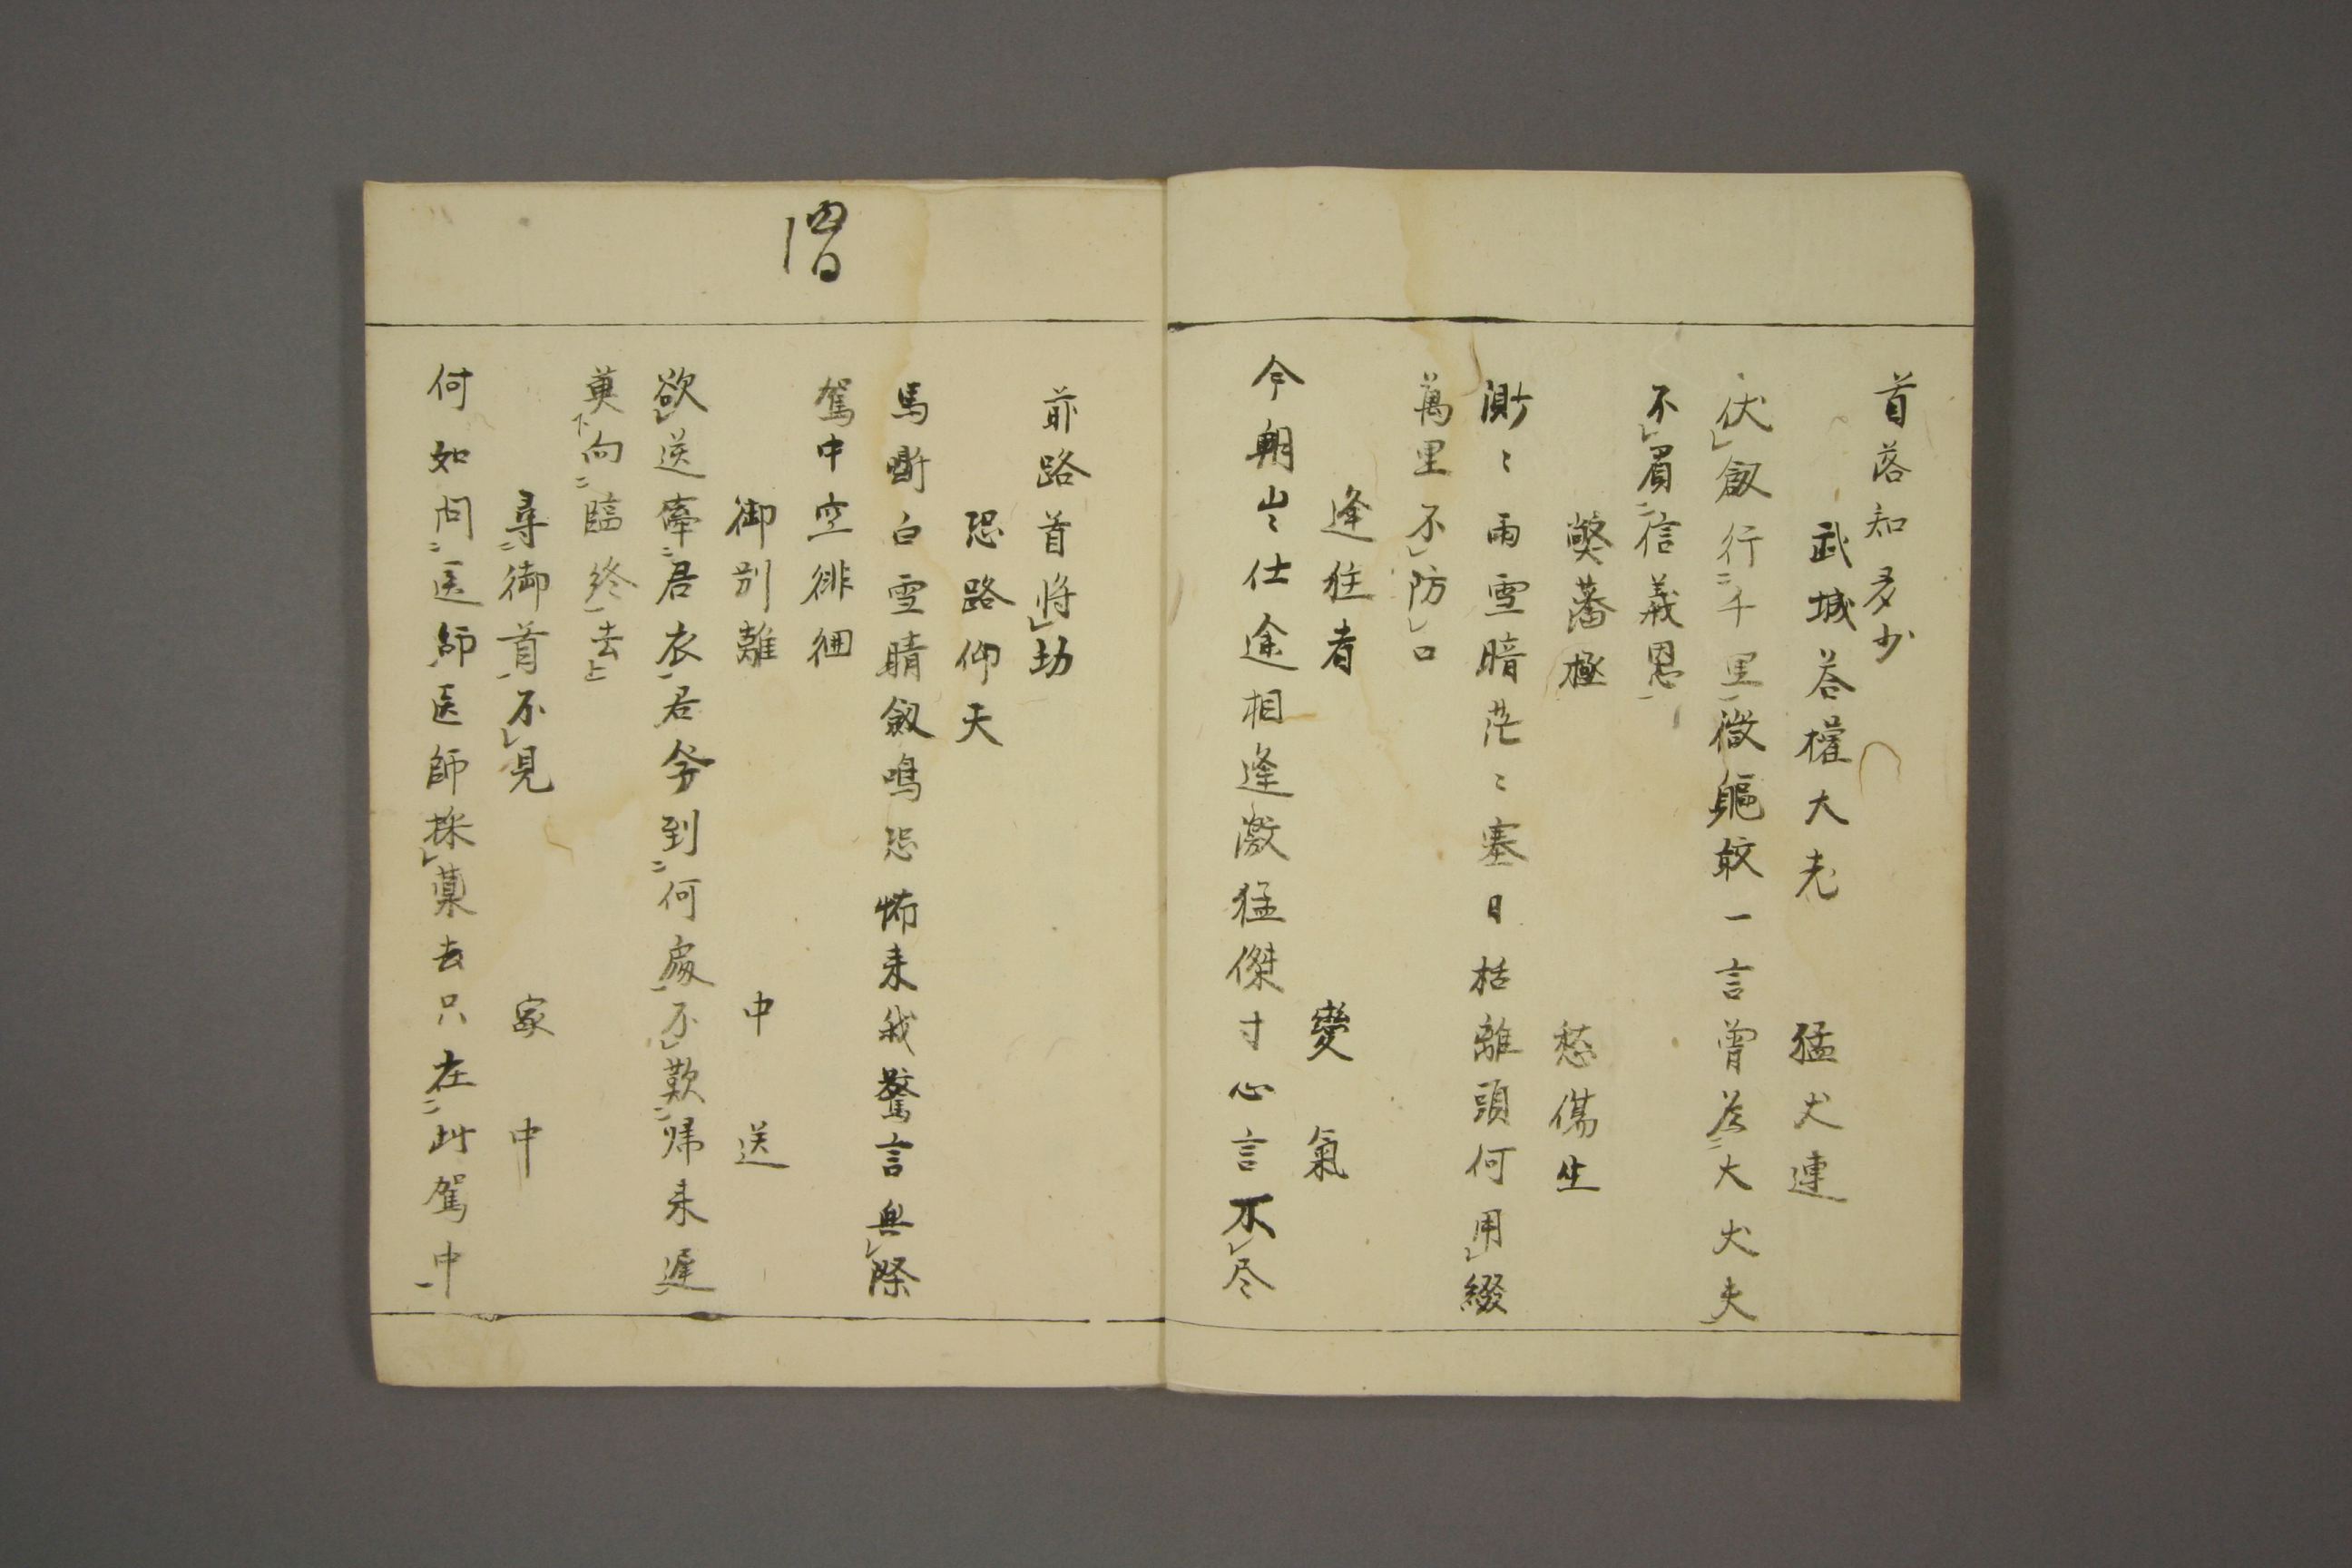 首落知多少
武城荅權大老 猛犬連
伏レ劔行二千里一微軀敢一言曽荅二大犬夫一
不レ屓二信義恩一
獘蕃極 愁傷生
測々雨雪暗茫々塞日括離頭何用レ綴
萬里不レ防レ口
逢狂者 變氣
今朝岂仕途相逢激猛傑寸心言不レ尽
前路首將レ劫
恐路仰天
馬断白雪晴劔鳴恐怖来我驚言無レ際
駕中空徘徊
御別離 中送
欲レ送牽二君衣一君爷到二何處一不レ歎二帰来遅一
莫下向二臨終一去上
尋二御首一不レ見 家中
何如問二医師医師採レ藥去只在二此駕中一